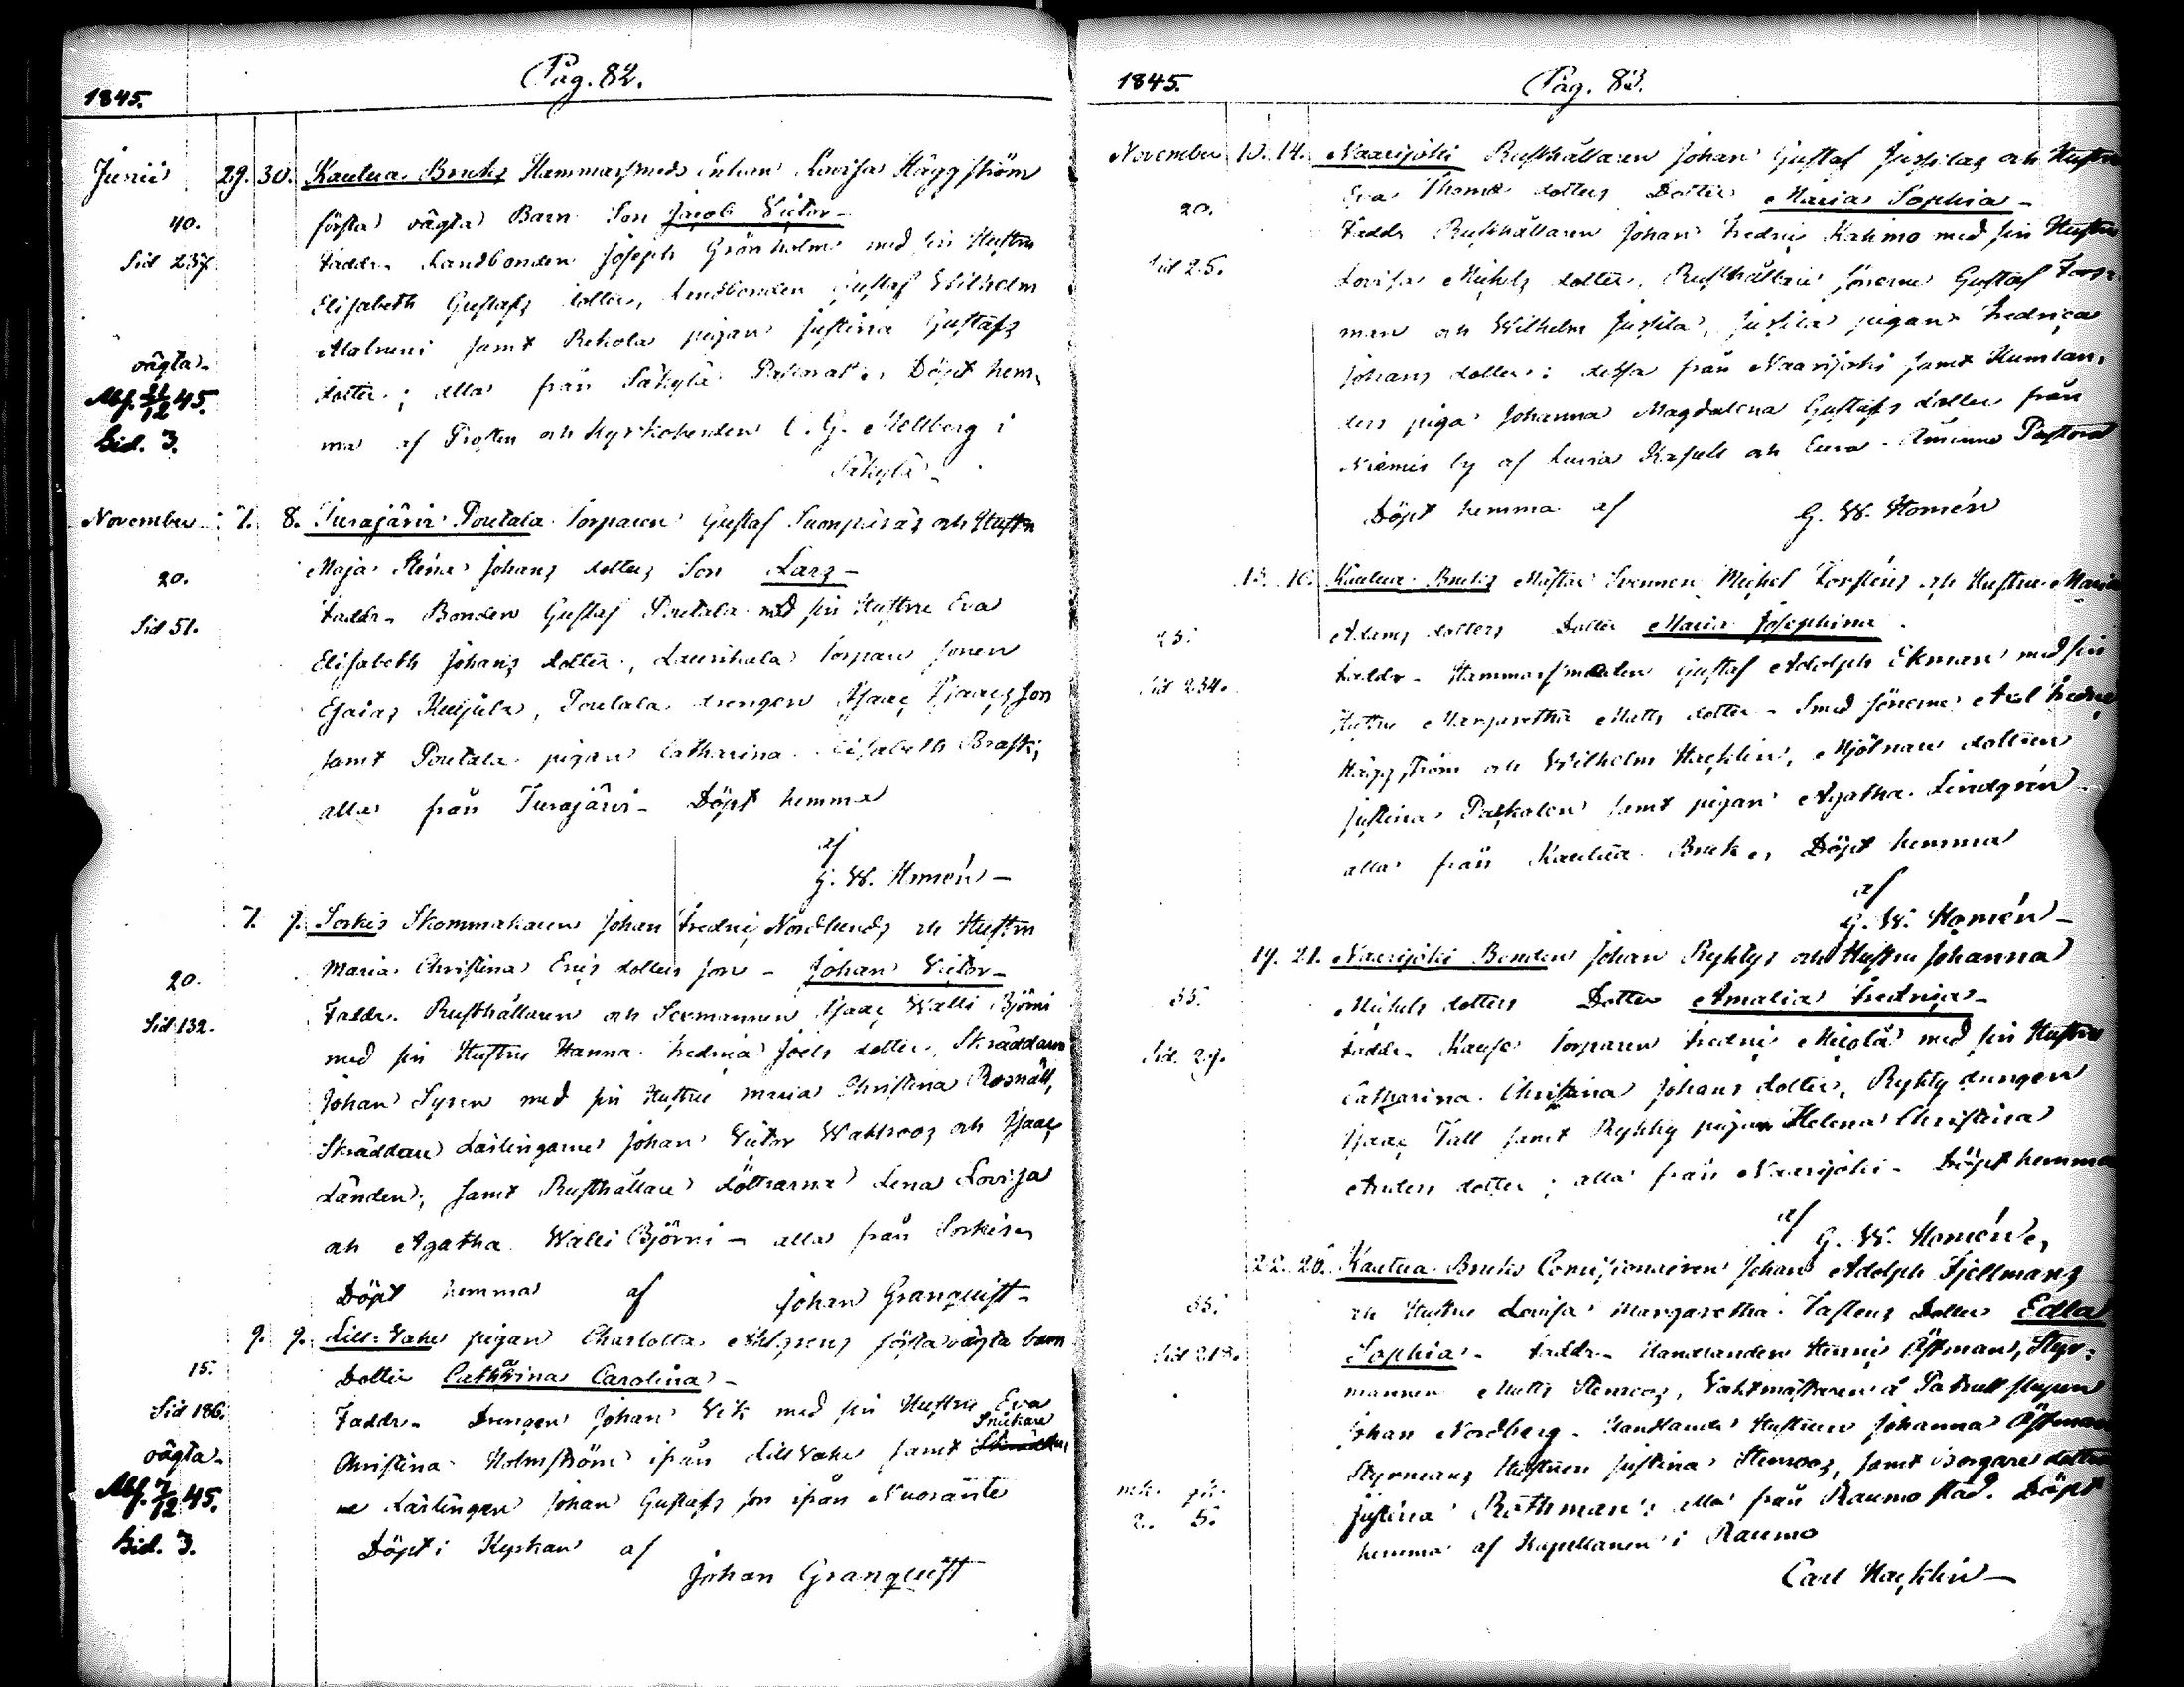 Pag. 82.
1845.
Junii 29. 30. Kautua Bruks Hammarsmeds Enkan Lovisa Häggström
40. första oägta Barn Son Jacob Victor –
Sid 237. Faddr. Landbonden Joseph Grönholm med sin Hustru
Elisabeth Gustafs dotter, Landbonden Gustaf Wilhelm
samt Rehola pigan Justina Gustafs
oägta. dotter; alla från Säkylä Pastorat. Döpt hem-
Abs. 21/12 45. ma af Prosten och Kyrkoherden C. G. Mellberg i
Sid. 3. Säkylä –
November 7. 8. Turajärvi Poutala Torparen Gustaf Suonpääs och Hustru
20. Maja Stina Johans dotters Son Lars –
Sid 51. Faddr. Bonden Gustaf Poutala med sin Hustru Eva
Elisabeth Johans dotter, Laurikala Torpare sonen
Esaias, Poutala drengen Isaac Isaacs son
samt Poutala pigan Catharina Elisabeth Brask;
alla från Turajärvi – Döpt hemma
af
G. W. Homén –
7. 9. Sorkis Skommakaren Johan Fredric Nordlunds och Hustru
20. Maria Christina Erics dotters son – Johan Victor –
Sid 132. Faddr. Rusthållaren och Sexmannen Isaac Walli Björni
med sin Hustru Hanna Fredrica Joels dotter, Skräddaren
Johan Syren med sin Hustru Maria Christina Rosnäll,
Skräddare Lärlingarne Johan Victor Wahlroos och Isaac
Länden; samt Rusthållare döttrarna Lena Lovisa
och Agatha Walli Björni – alla från Sorkis
Döpt hemma af Johan Granquist –
9. 9. Lill-Vahe pigan Charlotta Ahlgrens första oägta barn
15. Dotter Catharina Carolina –
Sid 186. Faddr. Drengen Johan Vik med sin Hustru Eva
oägta. Christina Holmström ifrån Lill Vahe samt Snickare
Abs. 7/12 45. Lärlingen Johan Gustafs son ifrån Nuoränte
Sid. 3. Döpt i Kyrkan af
Johan Granquist
1845. Pag. 83.
November 10. 14. Naarijoki Rusthållaren Johan Gustaf Jussilas och Hustru
20. Eva Thomæ dotters Dotter Maria Sophia –
Sid 25. Faddr Rusthållaren Johan Fredric Kahmo med sin Hustru
Lovisa Michels dotter, Rusthållare sönerne Gustaf Fors-
man och Wilhelm Jussila, Jussila pigan Fredrica
Johans dotter: dessa från Naarijoki samt Humlan-
ders piga Johanna Magdalena Gustafs dotter från
Niemis by af Luvia Kapell och Eura-Åminne Pastorat
Döpt hemma af G. W. Homén
15. 16. Kautua Bruks Mästare Svennen Michel Forsténs och Hustru Maria
25. Adams dotters Dotter Maria Josephina
Sid 234. Faddr. Hammarsmeden Gustaf Adolph Ekman med sin
Hustru Margaretha Matts dotter – Smed sönerne Axel Fredric
Häggström och Wilhelm Hacklin, Mjölnare dottren
Justina Paskalen samt pigan Agatha Lindgrén –
alla från Kautua Bruk. Döpt hemma
af
G. W. Homén –
19. 21. Naarijoki Bonden Johan Ryhtys och Hustru Johanna
35. Michels dotters Dotter Amalia Fredrica –
Sid. 29. Faddr. Torparen Fredric Micola med sin Hustru
Catharina Christina Johans dotter, Ryhty drengen
Isaac Tall samt Ryhty pigan Helena Christina
Anders dotter; alla från Naarijoki – Döpt hemma
af
G. W. Homén
22. 26. Kautua Bruks Johan Adolph Fjellmans
35. och Hustru Lovisa Margaretha Dotter Edla
Sid 218. Sophia – Faddr. Handlanden Henric Åkerman, Styr-
mannen Matts Stenroos, Vaktmästaren å
Johan Nordberg – Handlande Hustrun Johanna
Styrmans Hustrun Justina Stenroos, samt borgare dottren
2. 5. Justina Rothman: alla från Raumo stad. Döpt
hemma af Kapellanen i Raumo
Carl Hacklin –